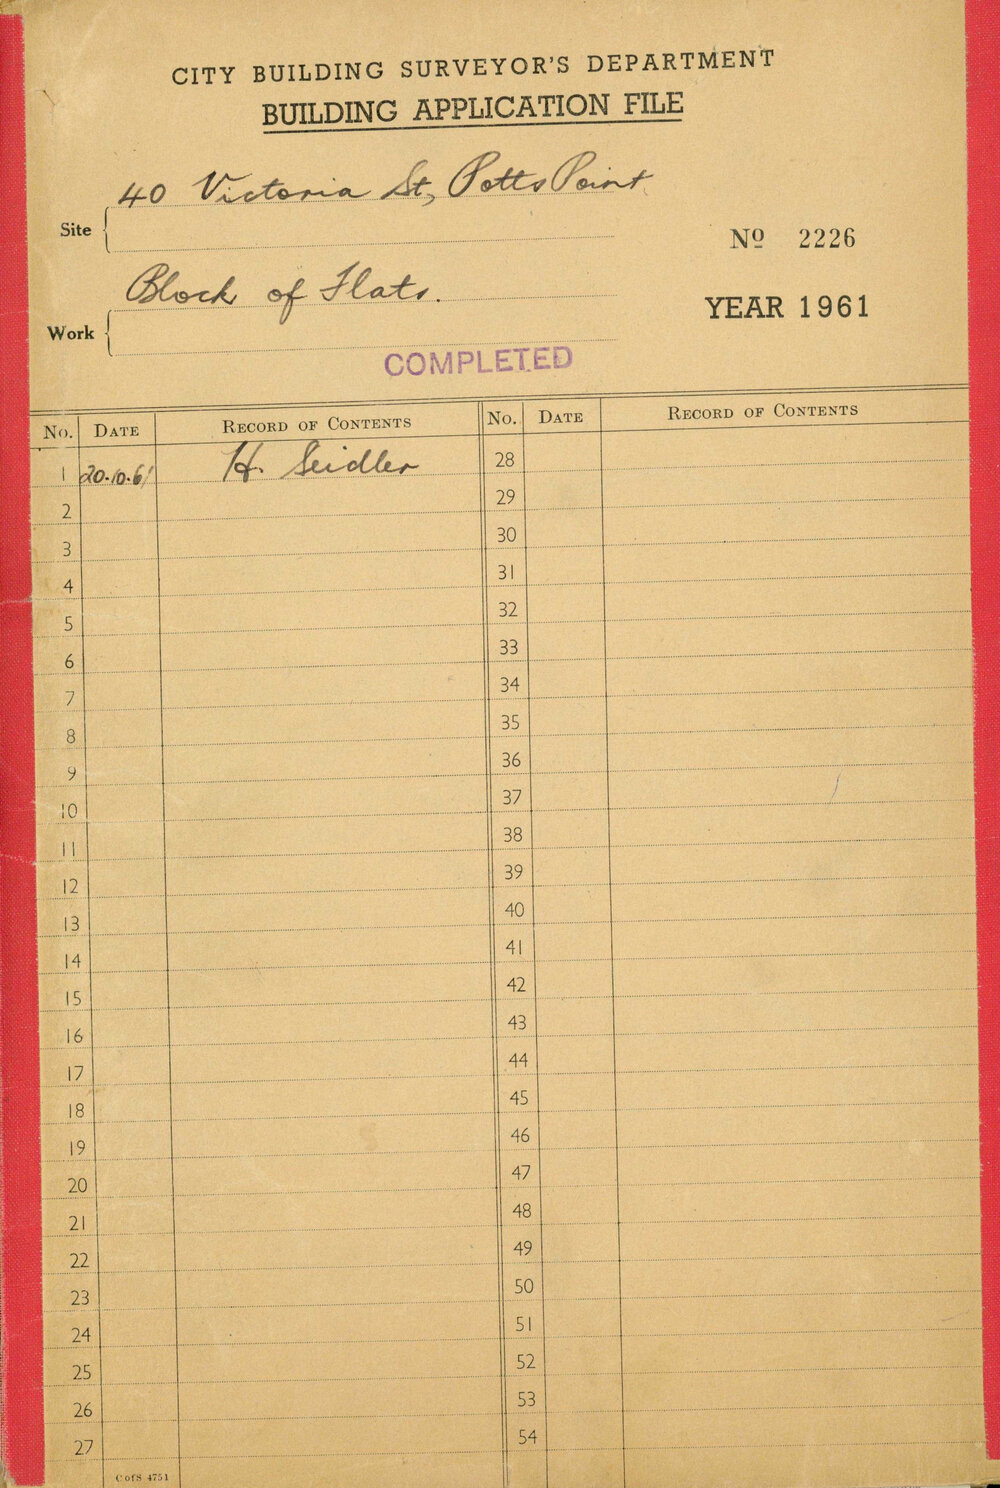 CITY BUILDING SURVEYOR'S DEPARTMENT
BUILDING APPLICATION FILE
40 Victoria St, Potts Point
Site
Nº 2226
Block of Flats.
YEAR 1961
Work
COMPLETED
No. DATE RECORD OF CONTENTS No. DATE RECORD OF CONTENTS
1 20.10.61 H. Seidler 28
2 29
3 30
4 31
5 32
6 33
7 34
8 35
9 36
10 37
11 38
12 39
13 40
14 41
15 42
16 43
17 44
18 45
19 46
20 47
21 48
22 49
23 50
24 51
25 52
26 53
27 54
C of S 4751